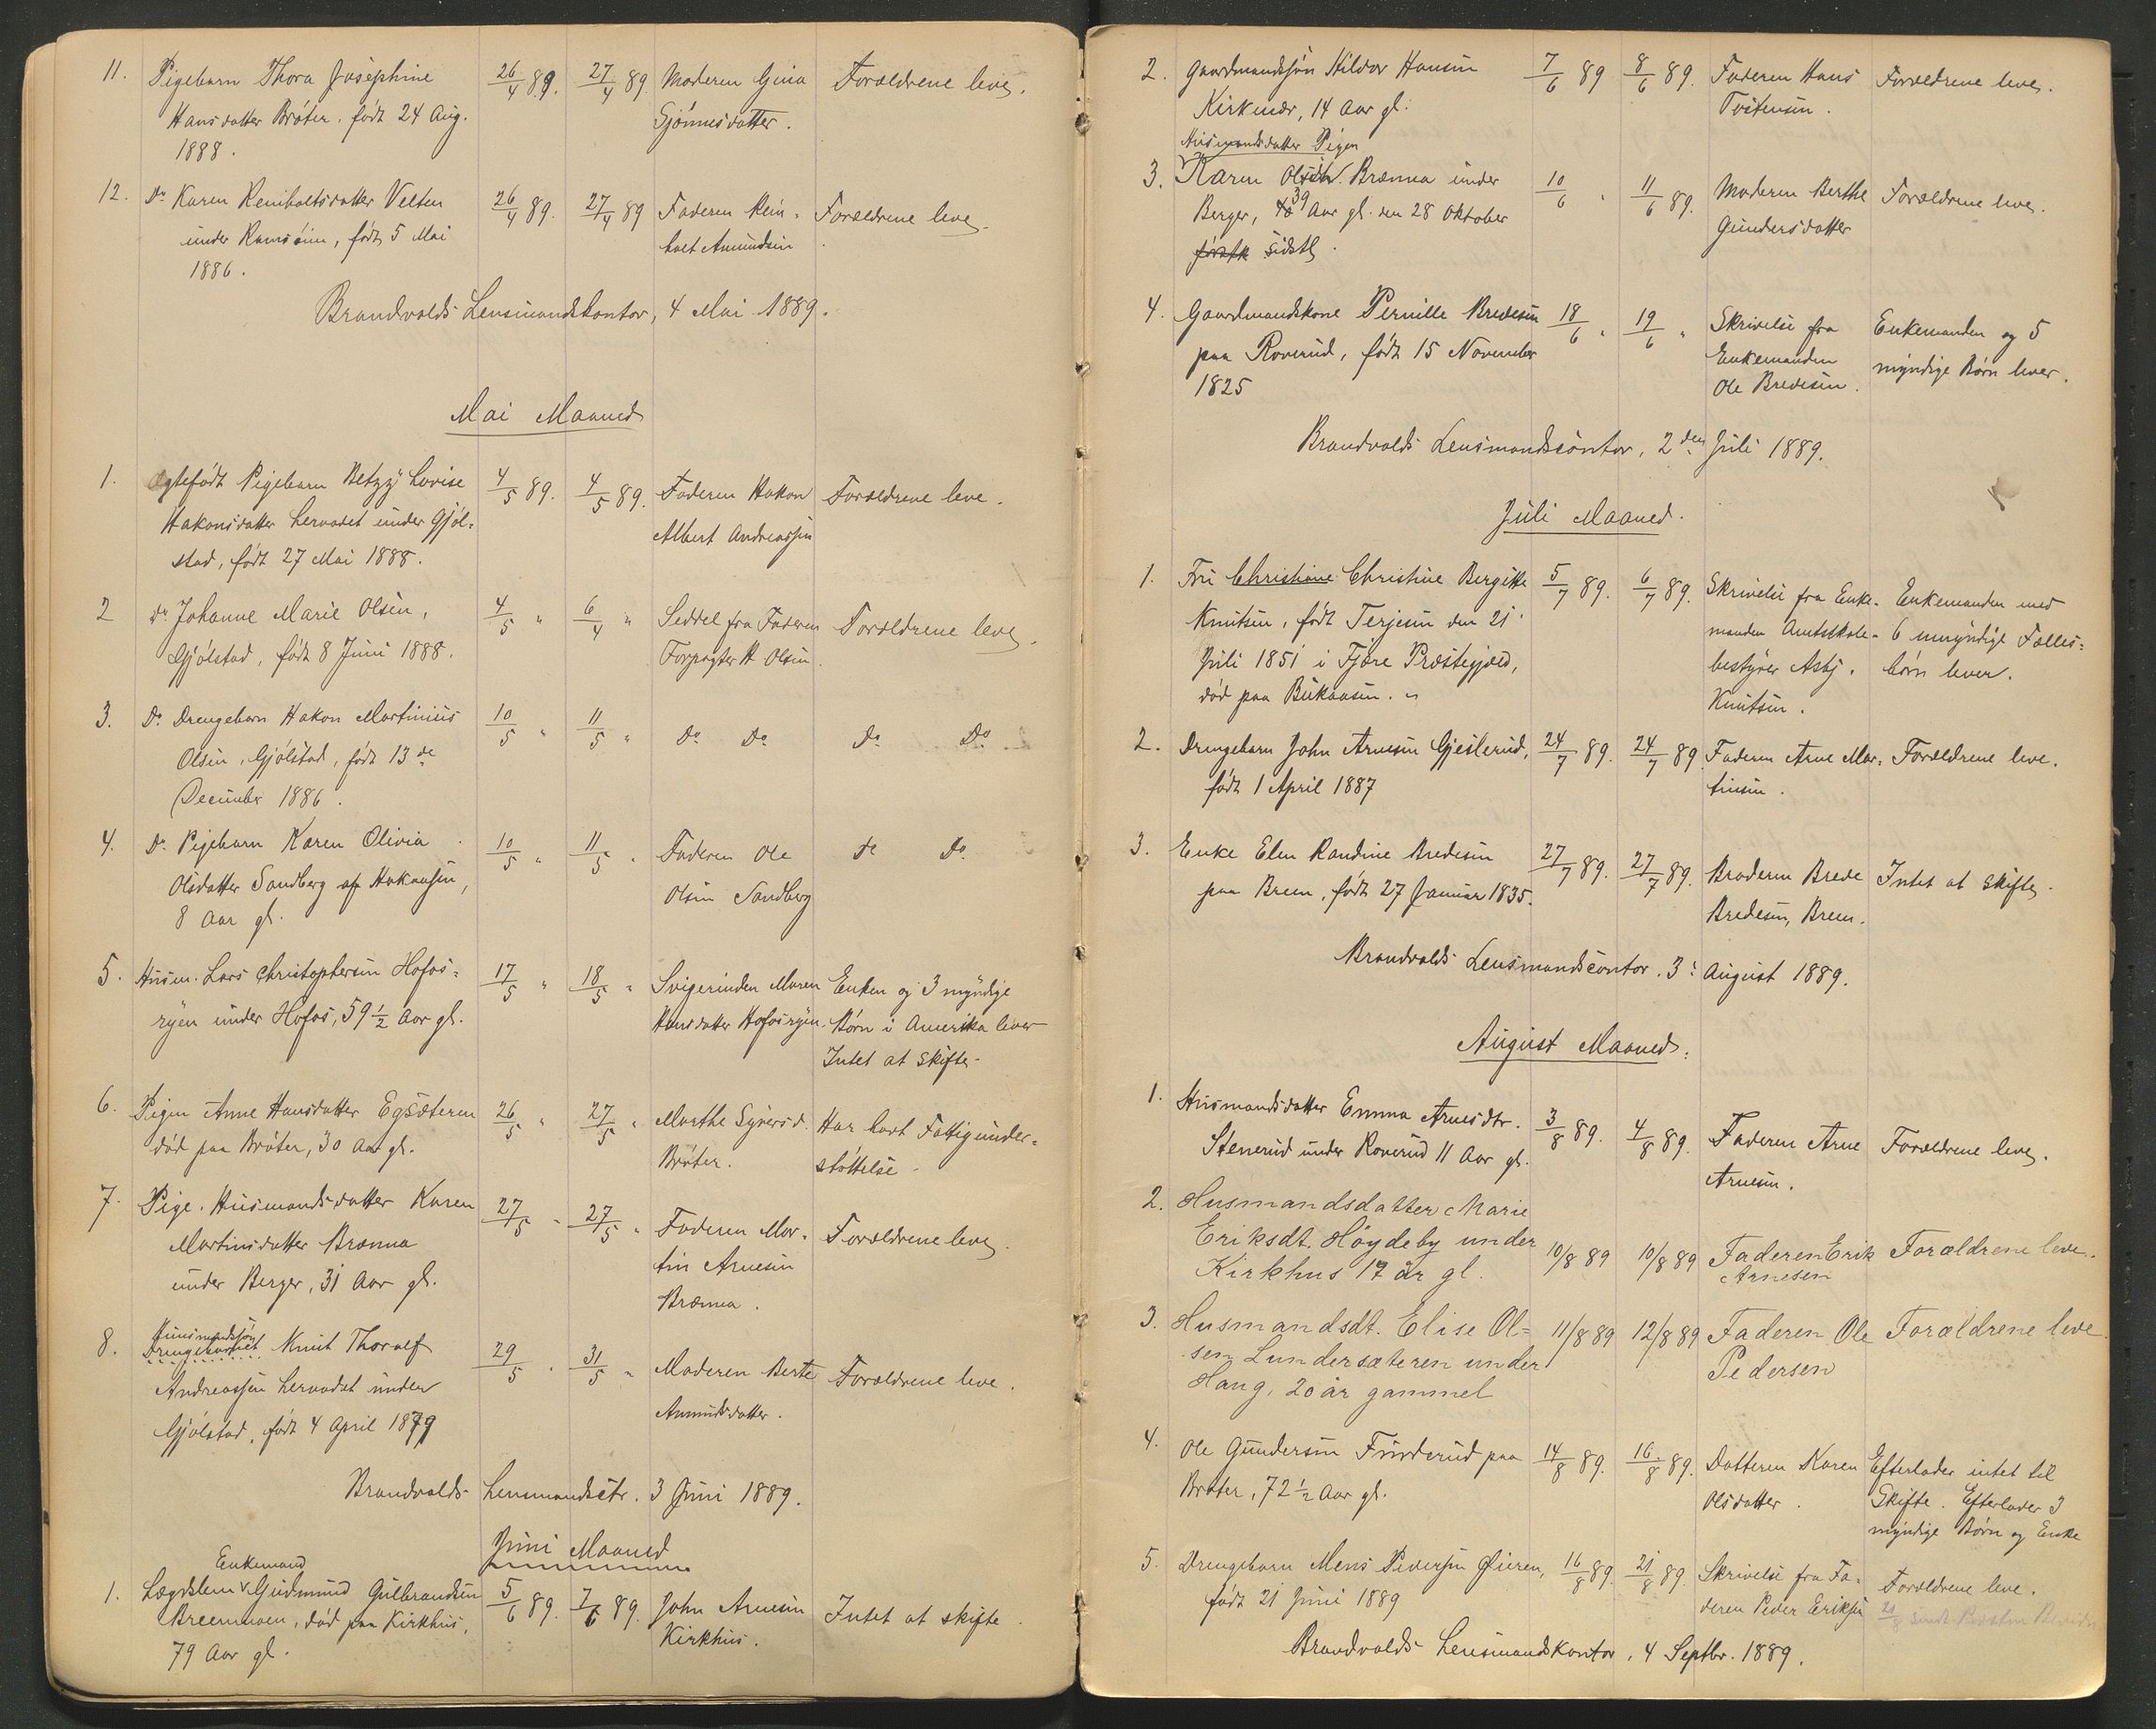 11. Pigebarn Thora Josephine 26/4 89. 27/4 89. Moderen Gina Forældrene leve.
Hansdatter Bråter, født 24 Aug. Gjønnesdatter.
1888.
12. Do Karen Reinholtsdatter Velten 26/4 89. 27/4 89 Faderen Rein- Forældrene leve.
under Ramsøien, født 5 Mai holt Amundsen
1886.
Brandvolds Lensmandskontor, 4 Mai 1889.
Mai Maaned
1. Ægtefødt Pigebarn Betzy Lovise 4/5 89. 4/5 89. Faderen Hakon Forældrene leve.
Hakonsdatter Lernodet under Gjøl- Albert Andreassen
stad, født 27 Mai 1888.
2 Do Johanne Marie Olsen, 4/5 " 6/4 " Seddel fra Faderen Forældrene leve.
Gjølstad, født 8 Juni 1888. Forpagter H Olsen.
3. Do Drengebarn Hakon Martinius 10/5 " 11/5 " Do Do Do Do
Olsen, Gjølstad, født 13de
December 1886.
4. Do Pigebarn Karen Olivia 10/5 " 11/5 " Faderen Ole Do Do
Olsdatter Sandberg af Hakaasen, Olsen Sandberg
8 Aar gl.
5. Husm. Lars Christophersen Hofos- 17/5 " 18/5 " Svigerinden Maren Enken og 3 myndige
ryen under Hofos, 59 1/2 Aar gl. Hansdatter Hofosryen. Børn i Amerika lever
Intet at skifte.
6. Pigen Anne Hansdatter Egsæteren 26/5 " 27/5 " Marthe Syversd. Har havt Fattigunder-
død paa Bråter, 30 Aar gl. Bråter. støttelse.
7. Pige. Husmandsdatter Karen 27/5 " 27/5 " Faderen Mar- Forældrene leve.
Martinsdatter Brænna tin Arnesen
under Berger, 31 Aar gl. Brænna.
Husmandssøn
8. Drengebarnet Knut Thoralf 29/5 " 31/5 " Moderen Berte Forældrene leve.
Andreassen Lernodet under Amundsdatter.
Gjølstad, født 4 April 1879
Brandvolds Lensmandsctr. 3 Juni 1889.
Juni Maaned
Enkemand
1. Lægdslem v Gudmund Gulbrandsen 5/6 89. 7/6 89. John Arnesen Intet at skifte.
Breenmoen, død paa Kirkhus, Kirkhus.
79 Aar gl.
2. Gaardmandssøn Hildor Hansen 7/6 89 8/6 89. Faderen Hans Forældrene leve.
Kirknær, 14 Aar gl. Tostensen.
Husmandsdatter Pigen
3. Karen Olsdtr. Brænna under 10/6 " 11/6 89. Moderen Berthe Forældrene leve.
Berger, 40 39 Aar gl. den 28 Oktober Gundersdatter
førstk sidstl.
4. Gaardmandskone Pernille Bredesen 18/6 " 19/6 " Skrivelse fra Enkemanden og 5
paa Roverud, født 15 November Enkemanden myndige Børn lever.
1825 Ole Bredesen.
Brandvolds Lensmandscontor, 2den Juli 1889.
Juli Maaned.
1. Fru Christiane Christine Bergitte 5/7 89. 6/7 89. Skrivelse fra Enke- Enkemanden med
Knutsen, født Terjesen den 21 manden Amtsskole- 6 umyndige Fælles-
Juli 1851 i Fjære Præstegjæld, bestyrer Asbj. børn lever.
død paa Bukaasen. Knutsen.
2. Drengebarn John Arnesen Gjeslerud, 24/7 89. 24/7 89. Faderen Arne Mar- Forældrene leve.
født 1 April 1887 tinsen.
3. Enke Elen Randine Bredesen 27/7 89. 27/7 89. Broderen Brede Intet at skifte.
paa Breen, født 27 Januar 1835. Bredesen, Breen.
Brandvolds Lensmandscontor. 3 August 1889.
August Maaned.
1. Husmandsdatter Emma Arnesdtr. 3/8 89. 4/8 89. Faderen Arne Forældrene leve.
Stenerud under Roverud 11 Aar gl. Arnesen.
2. Husmandsdatter Marie
Eriksdt. Høydeby under 10/8 89 10/8 89 Faderen Erik Forældrene leve.
Kirkhus 17 år gl. Arnesen
3. Husmandsdt. Elise Ol- 11/8 89 12/8 89 Faderen Ole Forældrene leve.
sen Lundersæteren under Pedersen
Haug, 20 år gammel
4. Ole Gundersen Furderud paa 14/8 89. 16/8 89. Datteren Karen Efterlader intet til
Bråter, 72 1/2 Aar gl. Olsdatter. Skifte. Efterlader 3
myndige Børn og Enke
5. Drengebarn Mens Pedersen Øieren, 16/8 89. 21/8 89. Skrivelse fra Fa- Forældrene leve.
født 21 Juni 1889 deren Peder Eriksen
Brandvolds Lensmandskontor, 4 Septbr. 1889.